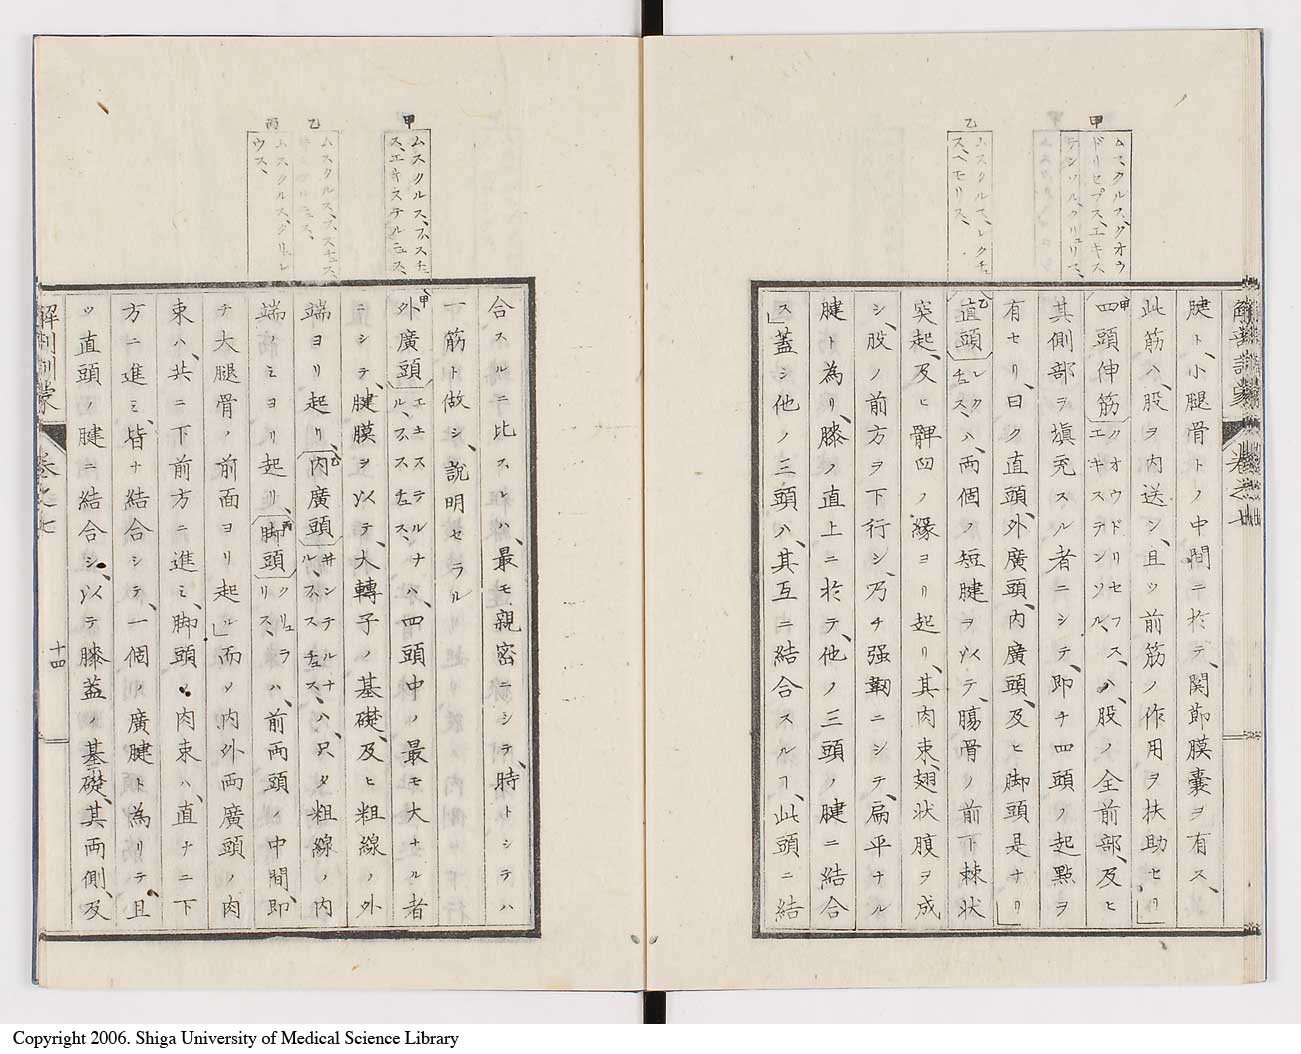 甲
ムスクルス、クオウ
ドリセプス、エキス
テンソル、クリュリス、
乙
ムスクルス、レクチュ
ス、ヘモリス、
解剖訓蒙
卷之七
腱ト、小腿骨トノ中間ニ於テ、関節膜囊ヲ有ス、
此筋ハ、股ヲ内送シ、且ツ前筋ノ作用ヲ扶助セリ」
甲四頭伸筋クオウドリセフス、エキステンソル、ハ、股ノ全前部、及ヒ
其側部ヲ塡充スル者ニシテ、即チ四頭ノ起點ヲ
有セリ、曰ク直頭、外廣頭、内廣頭、及ヒ脚頭是ナリ」
乙直頭レクチュス、ハ、両個ノ短腱ヲ以テ、腸骨ノ前下棘状
突起、及ヒ髀臼ノ縁ヨリ起リ、其肉束、翅状腹ヲ成
シ、股ノ前方ヲ下行シ、乃チ强靭ニシテ、扁平ナル
腱ト為リ、膝ノ直上ニ於テ、他ノ三頭ノ腱ニ結合
ス」蓋シ他ノ三頭ハ、其互ニ結合スルヿ、此頭ニ結
甲
ムスクルス、ファスチュ
ス、エキステルニュス、
乙
ムスクルス、ファスチュス、
丙
ムスクルス、クリュレ
ウス、
合スルニ比スレハ、最モ親密ニシテ、時トシテハ
一筋ト做シ、説明セラル
甲外廣頭エキステルナル、ファスチュス、ハ、四頭中ノ最モ大ナル者
ニシテ、腱膜ヲ以テ、大轉子ノ基礎、及ヒ粗線ノ外
端ヨリ起リ、乙内廣頭井ンテルナル、ファスチュス、ハ、只タ粗線ノ内
端ノミヨリ起リ、丙脚頭クリュラリス、ハ、前両頭ノ中間、即
チ大腿骨ノ前面ヨリ起ル」而ソ内外両廣頭ノ肉
束ハ、共ニ下前方ニ進ミ、脚頭ノ肉束ハ、直ナニ下
方ニ進ミ、皆ナ結合シテ、一個ノ廣腱ト為リテ、且
ツ直頭ノ腱ニ結合シ、以テ膝蓋ノ基礎、其両側、及
解剖訓蒙
卷之七
十四
Copyright 2006. Shiga University of Medical Science Library